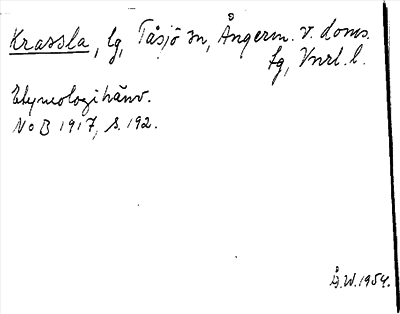 Krassla, lg, Tåsjö sn, Ångerm. v. doms.
fg, Vnrl. l.
Etymologihänv.
NoB 1917, s. 192.
Å.W. 1954.